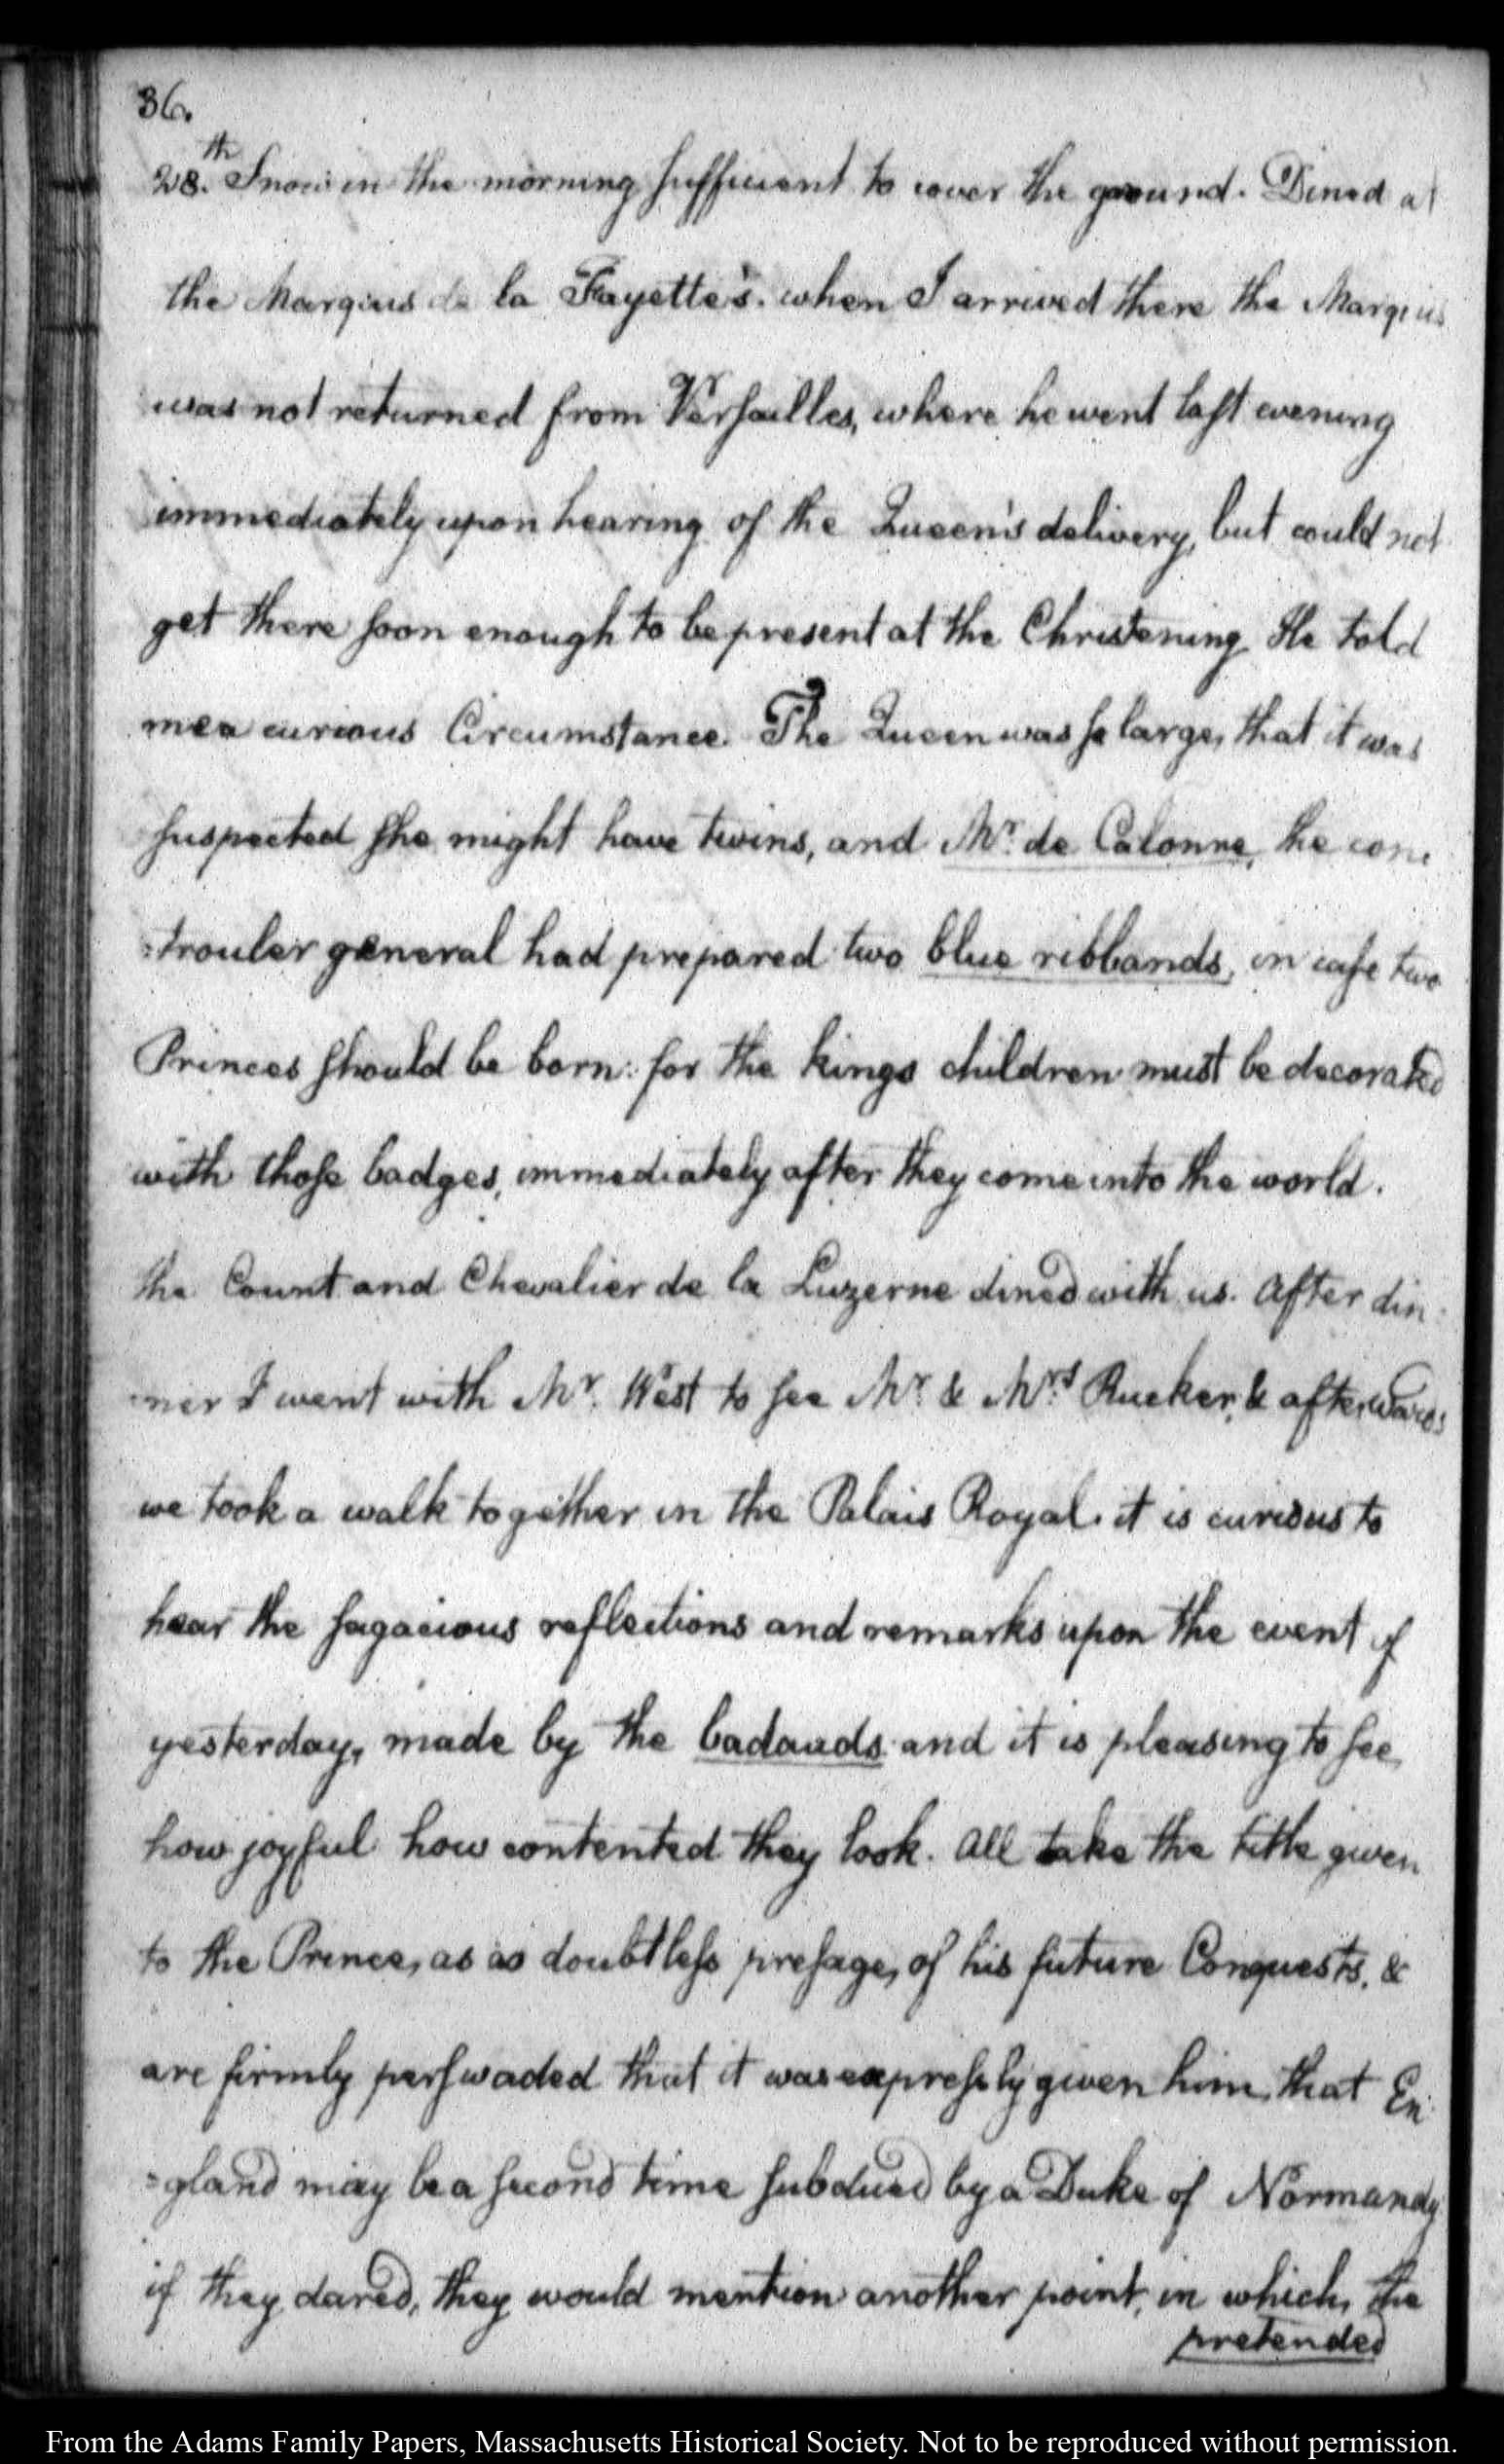 36.
28.th Snow in the morning sufficient to cover the ground. Dined at
the Marquis de la Fayette's. when I arrived there the Marquis
was not returned from Versailles, where he went last evening
immediately upon hearing of the Queen's delivery, but could not
get there soon enough to be present at the Christening. He told
me a curious Circumstance. The Queen was so large, that it was
suspected she might have twins, and Mr. de Calonne, the con
=trouler general had prepared two blue ribbands, in case two
Princes should be born: for the kings children must be decorated
with those badges, immediately after they come into the world.
the Count and Chevalier de la Luzerne dined with us. After din
-ner I went with Mr. West to see Mr. & Mrs. Rucker, & afterwards
we took a walk together in the Palais Royal. it is curious to
hear the sagacious reflections and remarks upon the event of
yesterday, made by the badauds and it is pleasing to see,
how joyful how contented they look. All take the title given
to the Prince, as a doubtless presage, of his future Conquests, &
are firmly perswaded that it was expressly given him, that En
=gland may be a second time subdued by a Duke of Normandy
if they dared, they would mention another point, in which, the
pretended
From the Adams Family Papers, Massachusetts Historical Society. Not to be reproduced without permission.